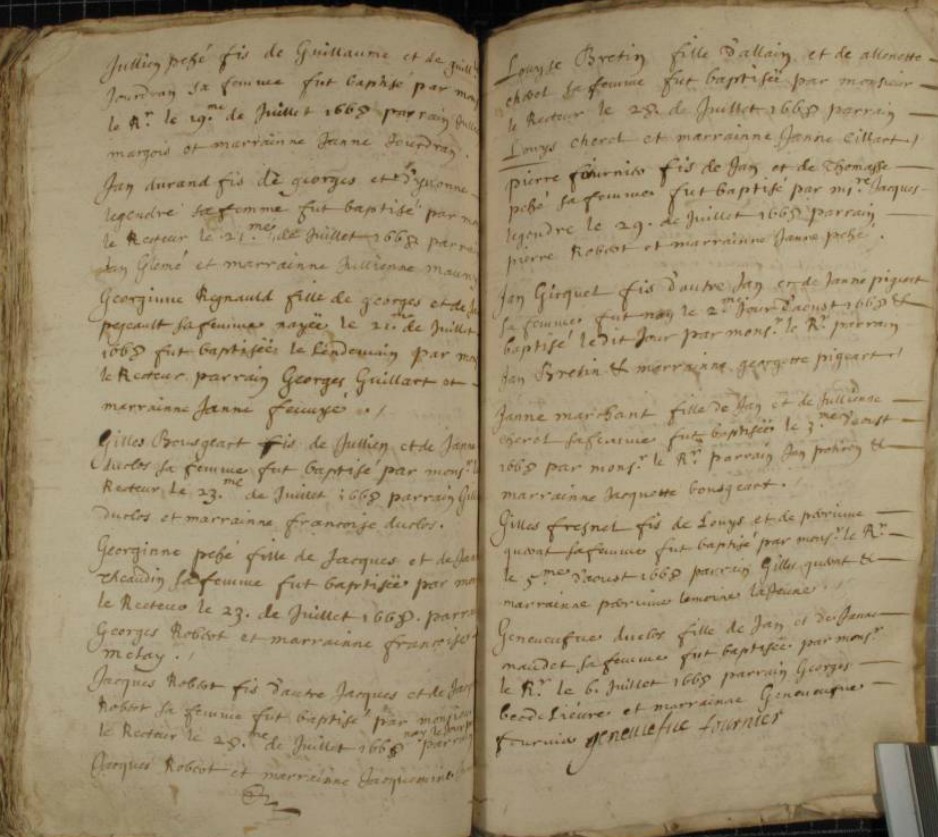 Jullien pehé fis de Guillaume et de Guill
Jourdran sa femme fut baptisé par mon
le Rr. le 19.me de Juillet 1668 parrain Jullien
margois et marrainne Janne Jourdran.
Jan durand fis de georges et d'yvonne
legendre sa femme fut baptisé par mo
le Recteur le 21.me de Juillet 1668 parrai
Jan Glemé et marrainne Jullienne maun
Georginne Regnauld fille de georges et de Ja
pejeault sa femme nayée le 21.me de Juillet
1668 fut baptiseë le Lendemain par mon
le Recteur parrain Georges Guillart et
marrainne Janne
Gilles Bousgeart fis de Jullien et de Janne
duclos sa femme fut baptisé par monsr. l
Recteur le 23.me de Juillet 1668 parrain Gill
duclos et marrainne francoise duclos.
Georginne pehé fille de Jacques et de Jan
sa femme fut baptiseë par mon
le Recteur le 23. de Juillet 1668. parra
Georges Robert et marrainne francoise
metay.
Jacques Robert fis d'autre Jacques et de Jacq
Robert sa femme fut baptisé par monsieur
le Recteur le 28.me de Juillet 1668 nay le Jour parrain
Jacques Robert et marrainne Jacquemine
Louyse Bretin fille d'allain et de allonette
cherol sa femme fut baptiseë par monsieur
le Recteur le 28. de Juillet 1668 parrain
Louys cherol et marrainne Janne Cillart
pierre fournier fis de Jan et de Thomasse
pehé sa femme fut baptisé par mi.re Jacques
legendre le 29. de Juillet 1668 parrain
pierre Robert et marrainne Janne pehé.
Jan Gicquel fis d'autre Jan et de Janne pigeart
sa femme fut nay le 2.me Jour d'aoust 1668 &
baptisé ledit Jour par monsr. le Rr. parrain
Jan Bretin & marrainne georgette pigeart
Janne marchant fille de Jan et de Jullienne
cherol sa femme fut baptiseë le 3.me d'aoust
1668 par monsr. le Rr. parrain Jan &
marrainne Jacquette bousgeart.
Gilles fresnel fis de Louys et de perrinne
sa femme fut baptisé par monsr. le Rr.
le 5.me d'aoust 1668 parrain Gilles &
marrainne perrinne lemoine la Jeune
Geneuefue duclos fille de Jan et de Janne
maudet sa femme fut baptisée par monsr
le Rr. le 6. Juillet 1668 parrain Georges
becdelièvre et marrainne Geneuefue
fournier geneuiefue fournier